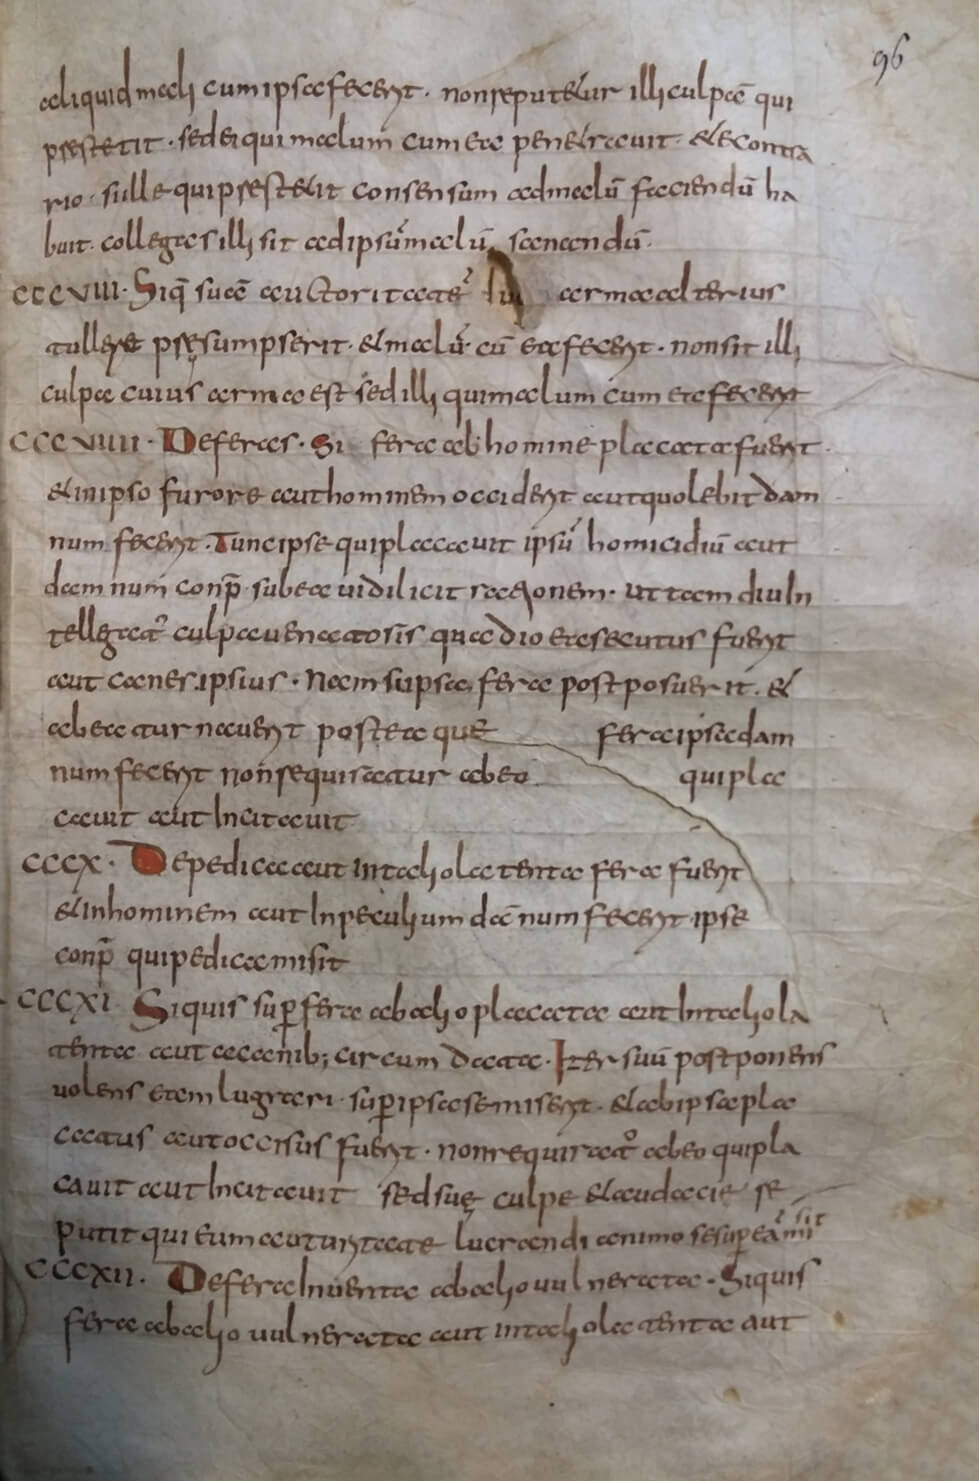 96
aliquid mali cum ipsa fecerit. non reputetur illi culpā qui
prestetit. sed ei qui malum cum ea penetravit. et econtra
rio. si ille qui prestetit consensum ad malū faciendū ha
buit. collega illi sit ad ipsū malū saneandū.
CCCVIII. Siq̄ suā auctoritatē arma alterius
tullerit presumpserit. et malū cū ea fecerit. non sit illi
culpa cuius arma est sed illi qui malum cum ea fecerit
CCCVIIII. De feras. Si fera ab homine placata fuerit.
et in ipso furore aut hominem occiderit aut quolebit dam
num fecerit. Tunc ipse qui placavit ipsū homicidiū aut
damnum conp̄ sub ea vidilicit racionem. ut tam diu in
tellegatur culpa venatoris quadio ea secutus fuerit
aut canes ipsius. Nam si ipsa fera postposuerit. et
abea turnaverit postea que fera ipsa dam
num fecerit non sequiratur ab eo qui pla
cavit aut incitavit
CCCX. De pedica aut in taliola tenta fera fuerit
et in hominem aut in peculium dānum fecerit ipse
conp̄ qui pedica misit
CCCXI Siquis sup̱ fera ab alio placata aut in taliola
tenta aut a canib; circumdata. Iter suū postponens
volens eam lugrari. sup̱ ipsa se miserit. et ab ipsa pla
catus aut occisus fuerit. non requiratur ab eo qui pla
cavit aut incitavit sed suę culpe et audacie se
putit qui eum aucturitate lucrandi animo se sup̱ eā misit
CCCXII. De fera inventa ab alio vulnerata. Siquis
fera ab alio vulnerata aut in taliola tenta aut